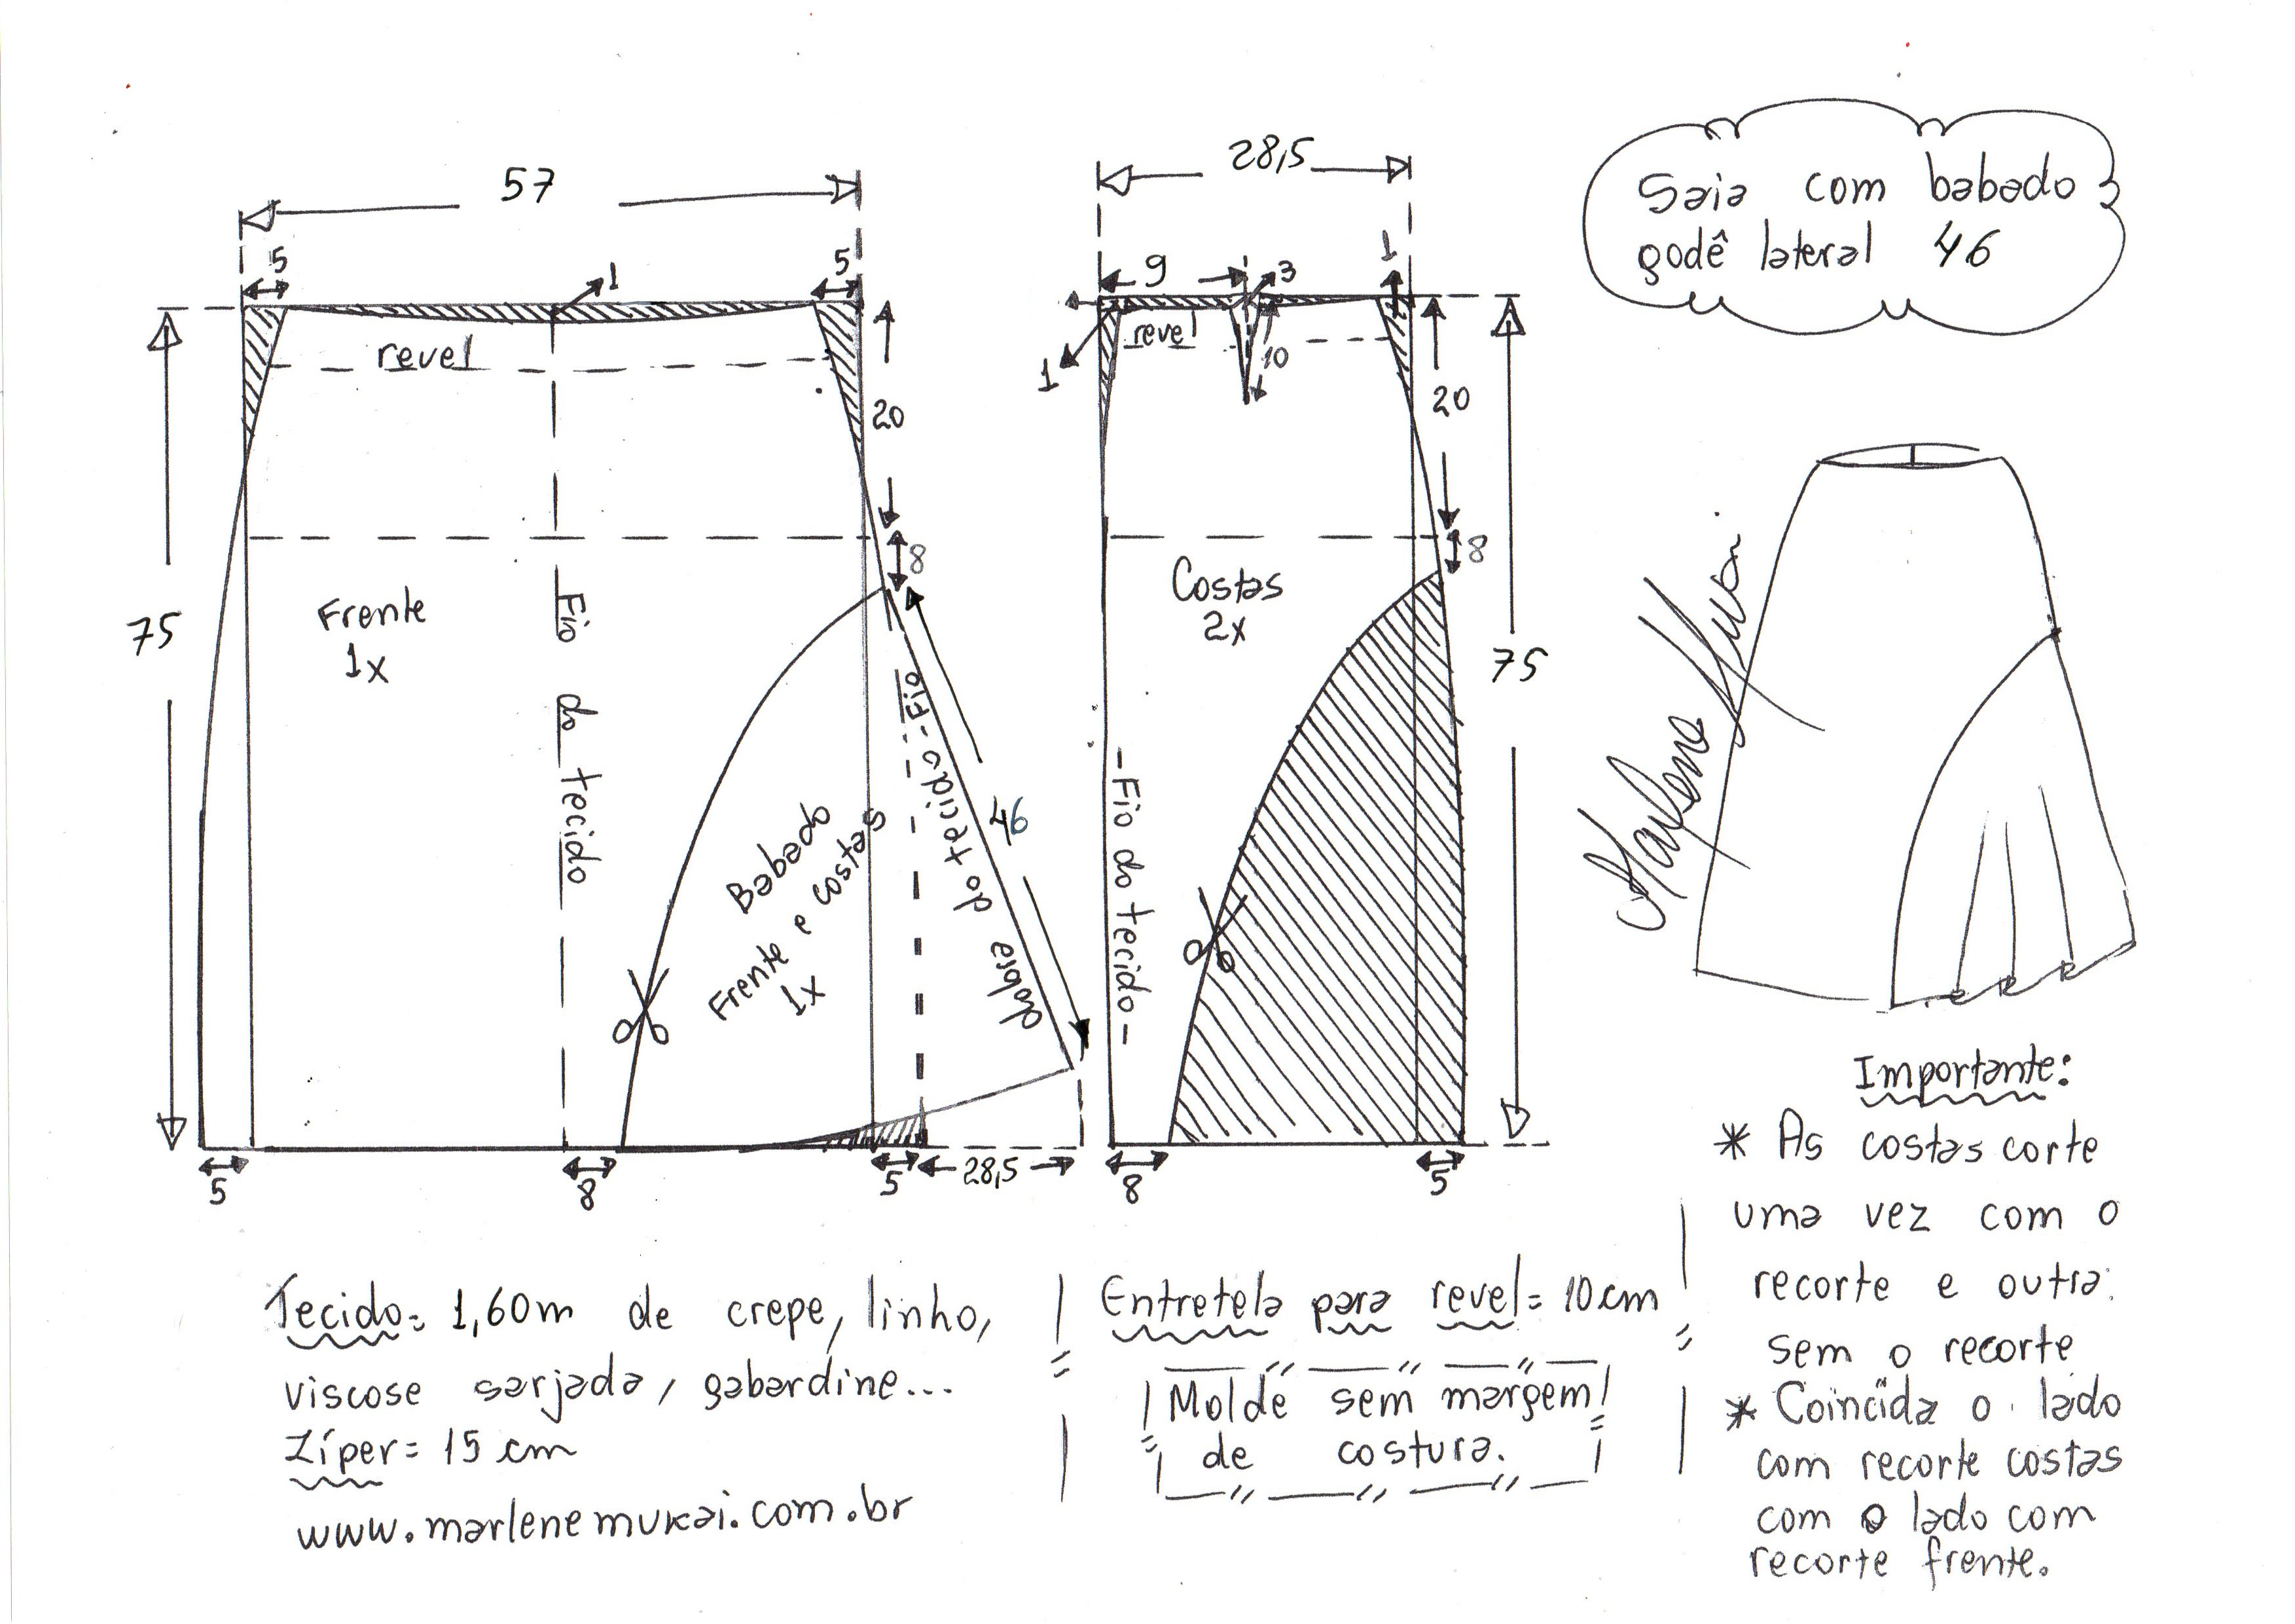 57
5
5
1
revel
20
8
75
Frente
1x
Fio do tecido
Babado
Frente e costas
1x
Fio do tecido
dobre
46
5
8
5
28,5
28,5
9
3
1
1
revel
10
20
8
Costas
2x
75
Fio do tecido
8
5
Saia com babado
godê lateral 46
Marlene Mukai
Importante:
* As costas corte
uma vez com o
recorte e outra
sem o recorte
* Coincida o lado
com recorte costas
com o lado com
recorte frente.
Tecido= 1,60m de crepe, linho,
viscose sarjada, gabardine...
Zíper= 15 cm
www.marlenemukai.com.br
Entretela para revel= 10cm
Molde sem margem
de costura.